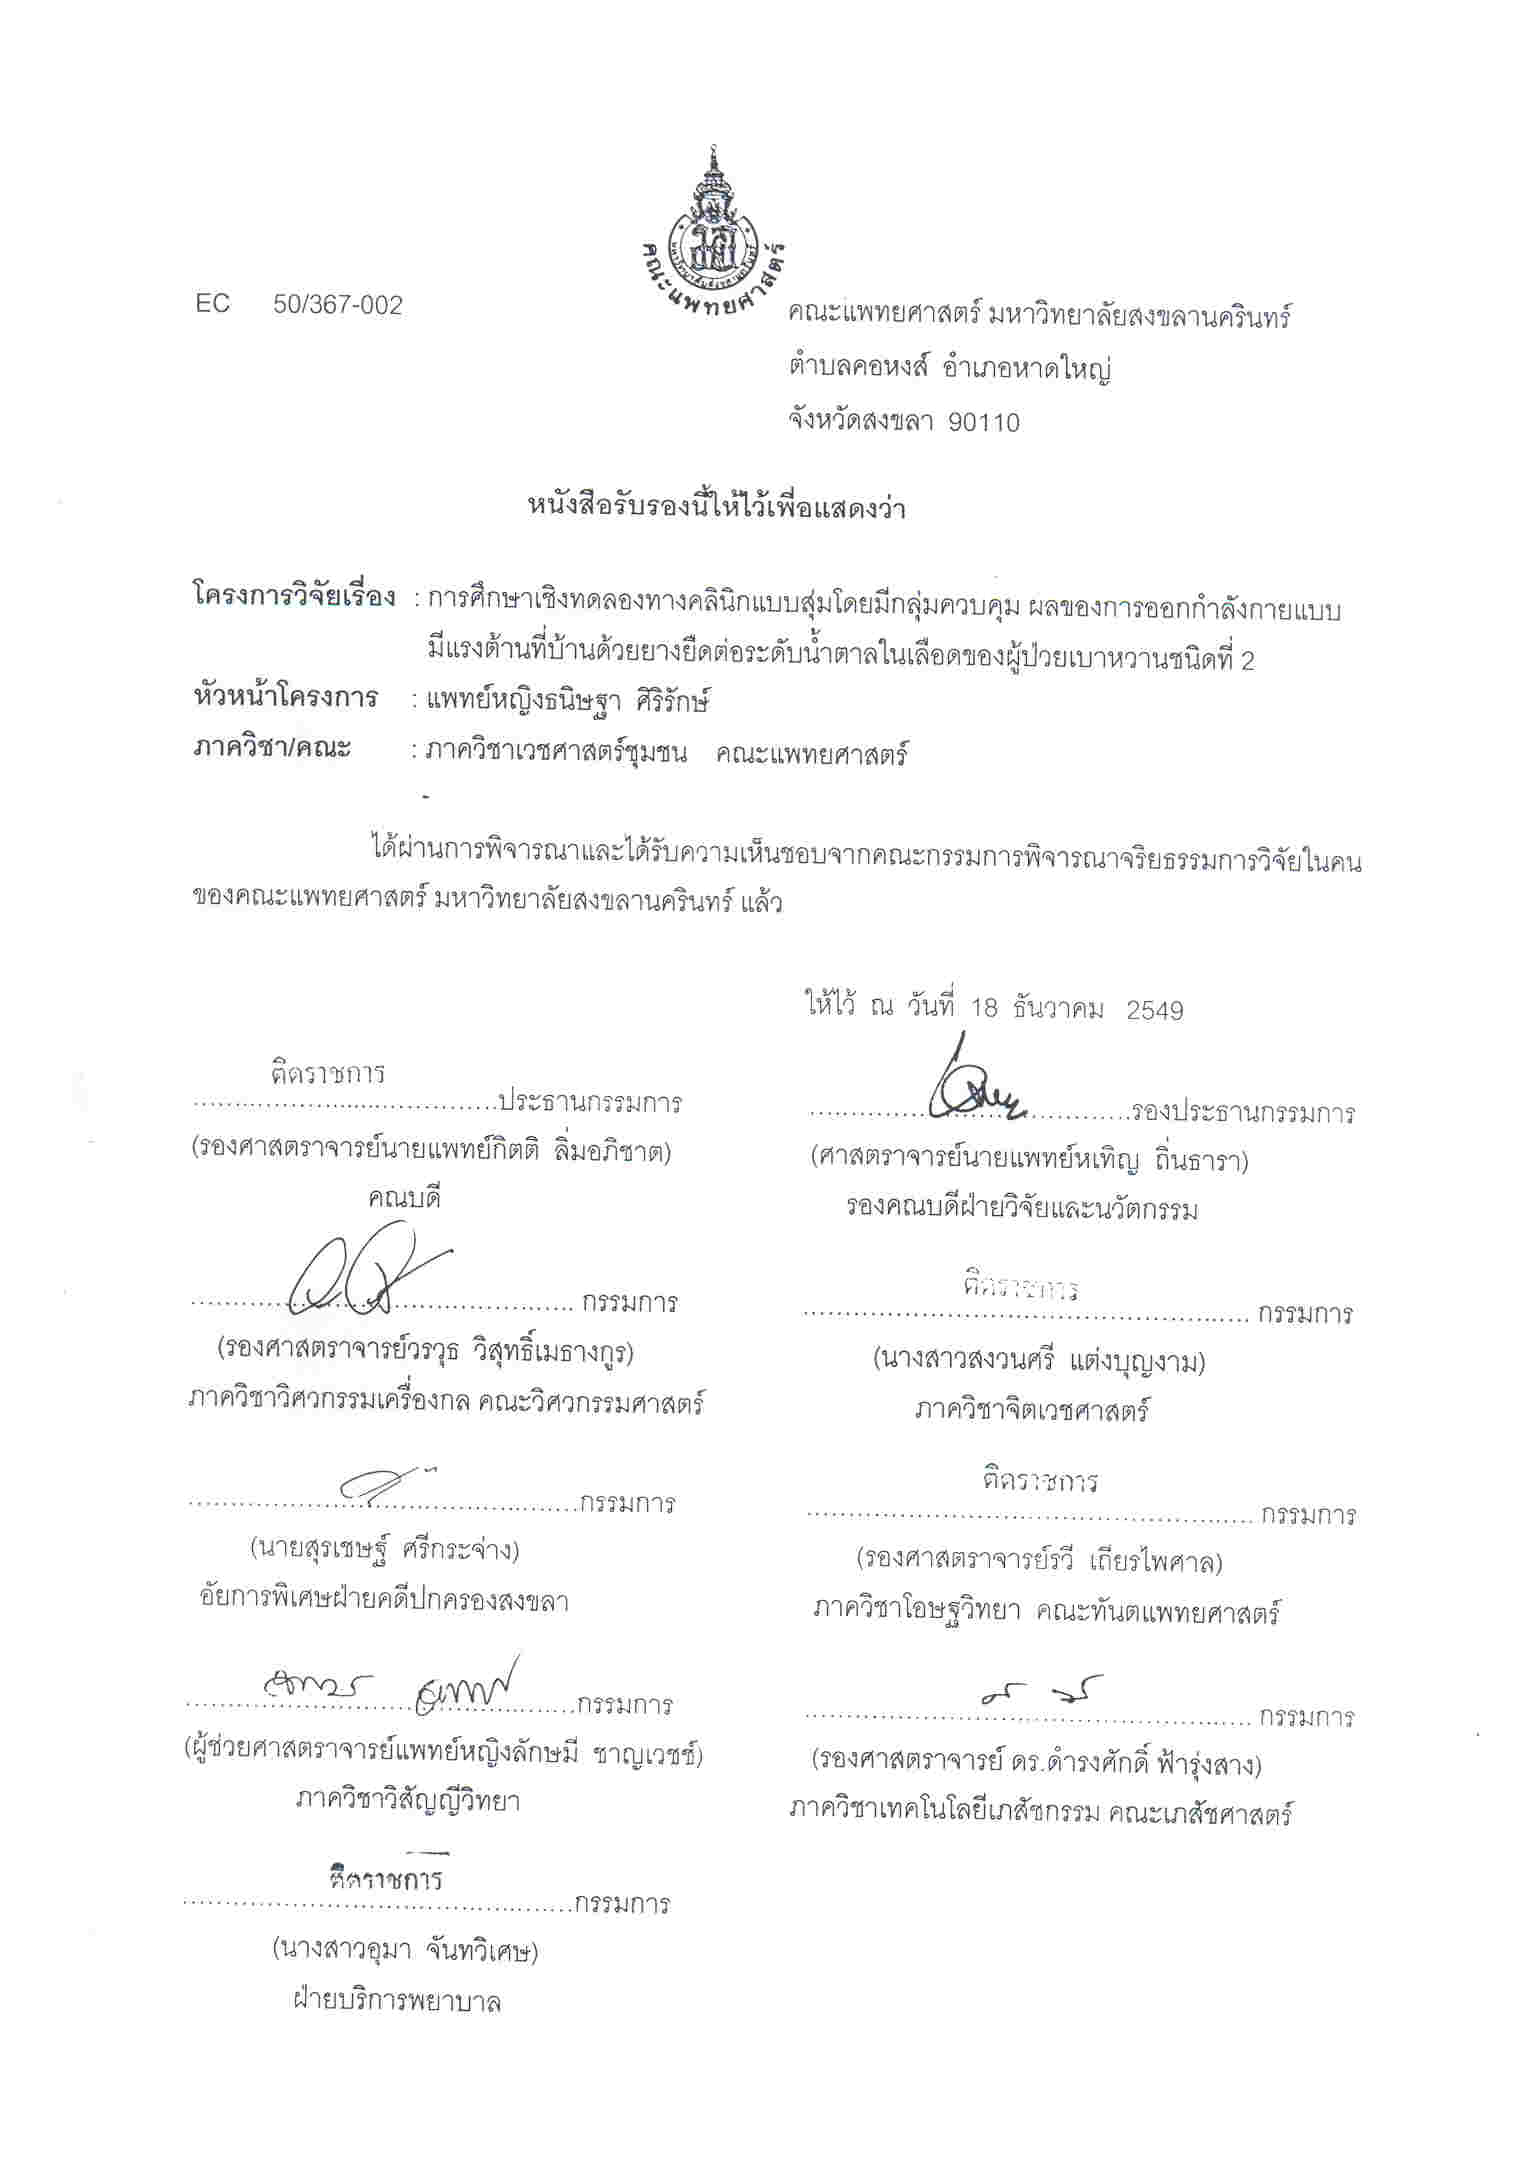 คณะแพทยศาสตร์
EC 50/367-002
คณะแพทยศาสตร์ มหาวิทยาลัยสงขลานครินทร์
ตำบลคอหงส์ อำเภอหาดใหญ่
จังหวัดสงขลา 90110
หนังสือรับรองนี้ให้ไว้เพื่อแสดงว่า
โครงการวิจัยเรื่อง : การศึกษาเชิงทดลองทางคลินิกแบบสุ่มโดยมีกลุ่มควบคุม ผลของการออกกำลังกายแบบ
มีแรงต้านที่บ้านด้วยยางยืดต่อระดับน้ำตาลในเลือดของผู้ป่วยเบาหวานชนิดที่ 2
หัวหน้าโครงการ : แพทย์หญิงธนิษฐา ศิริรักษ์
ภาควิชา/คณะ : ภาควิชาเวชศาสตร์ชุมชน คณะแพทยศาสตร์
ได้ผ่านการพิจารณาและได้รับความเห็นชอบจากคณะกรรมการพิจารณาจริยธรรมการวิจัยในคน
ของคณะแพทยศาสตร์ มหาวิทยาลัยสงขลานครินทร์ แล้ว
ให้ไว้ ณ วันที่ 18 ธันวาคม 2549
ติดราชการ
......................................ประธานกรรมการ
(รองศาสตราจารย์นายแพทย์กิตติ ลิ่มอภิชาต)
คณบดี
......................................รองประธานกรรมการ
(ศาสตราจารย์นายแพทย์หเทิญ ถิ่นธารา)
รองคณบดีฝ่ายวิจัยและนวัตกรรม
............................................... กรรมการ
(รองศาสตราจารย์วรวุธ วิสุทธิ์เมธางกูร)
ภาควิชาวิศวกรรมเครื่องกล คณะวิศวกรรมศาสตร์
ติดราชการ
...................................................... กรรมการ
(นางสาวสงวนศรี แต่งบุญงาม)
ภาควิชาจิตเวชศาสตร์
................................................กรรมการ
(นายสุรเชษฐ์ ศรีกระจ่าง)
อัยการพิเศษฝ่ายคดีปกครองสงขลา
ติดราชการ
...................................................... กรรมการ
(รองศาสตราจารย์รวี เถียรไพศาล)
ภาควิชาโอษฐวิทยา คณะทันตแพทยศาสตร์
................................................กรรมการ
(ผู้ช่วยศาสตราจารย์แพทย์หญิงลักษมี ชาญเวชช์)
ภาควิชาวิสัญญีวิทยา
...................................................... กรรมการ
(รองศาสตราจารย์ ดร.ดำรงศักดิ์ ฟ้ารุ่งสาง)
ภาควิชาเทคโนโลยีเภสัชกรรม คณะเภสัชศาสตร์
ติดราชการ
................................................กรรมการ
(นางสาวอุมา จันทวิเศษ)
ฝ่ายบริการพยาบาล